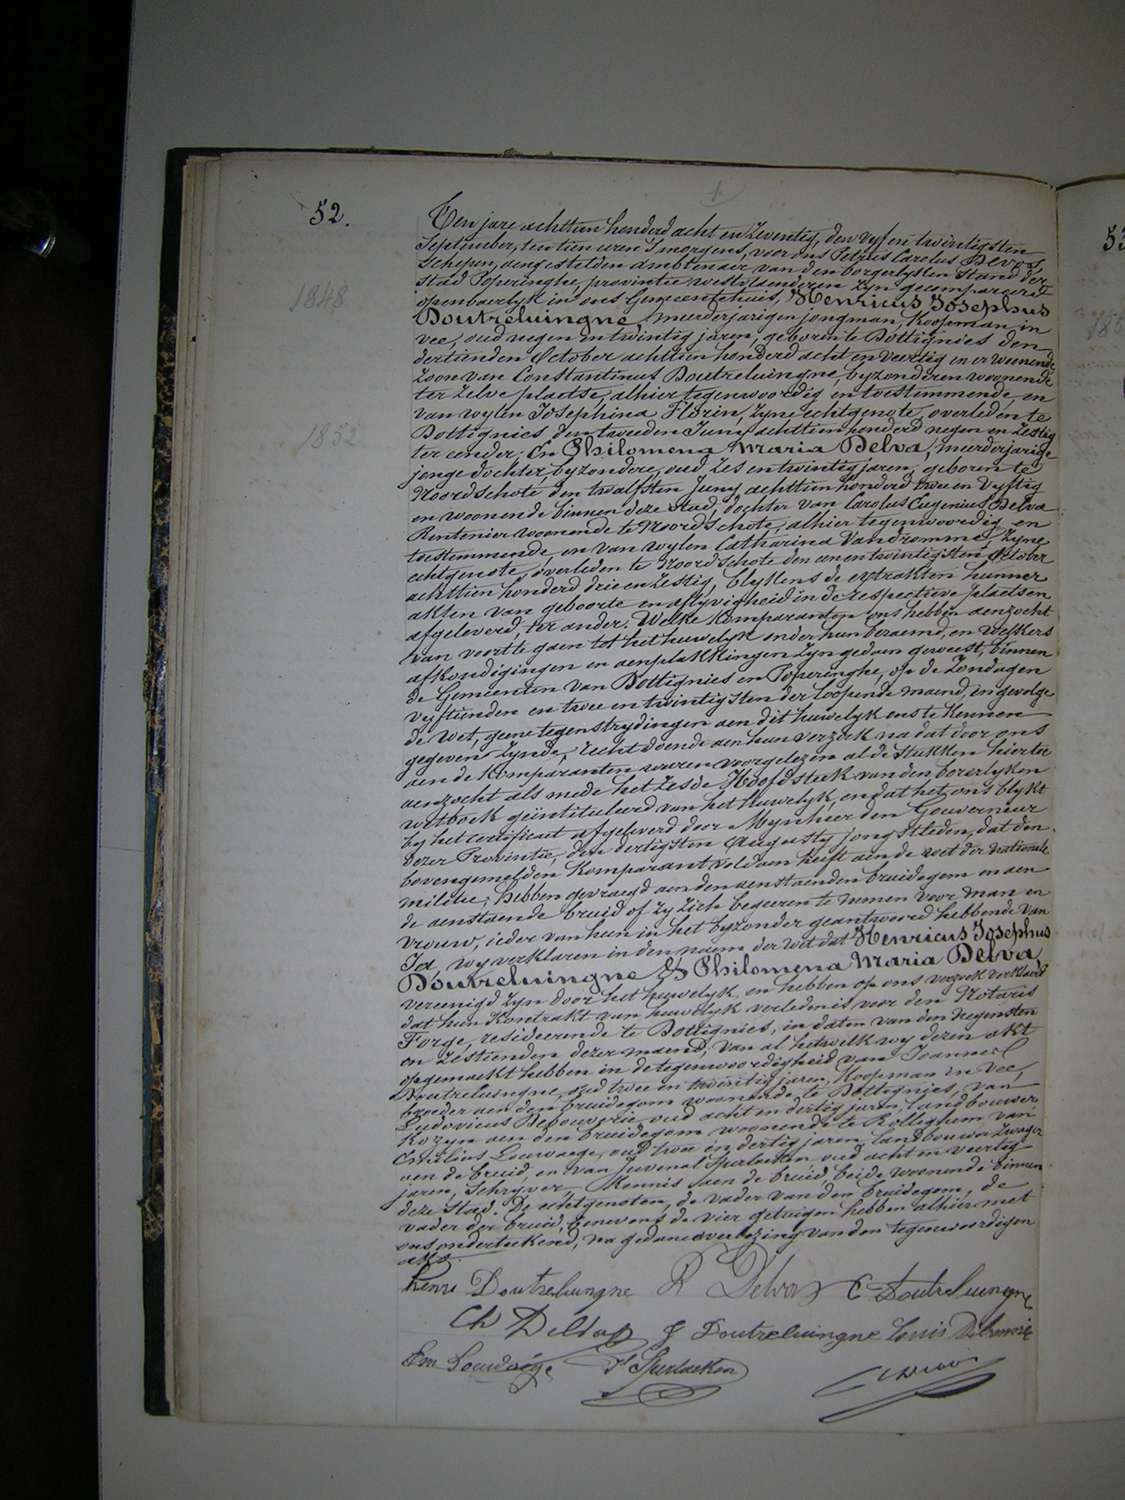 52.
Ten jare achttien honderd acht en zeventig, den vyf en twintigsten
September, ten tien uren 's morgens, voor ons Petrus Carolus Devos,
Schepen, aengestelden ambtenaer van den borgerlyken Stand der
stad Poperinghe, provintie westvlaenderen zyn gecompareerd
openbaerlyk in ons Gemeentehuis, Henricus Josephus
1848
Doutreluingne, meerderjarigen jongman, Koopman in
vee, oud negen en twintig jaren, geboren te Dottignies den
dertienden October achttien honderd acht en veertig en er woonende
Zoon van Constantinus Doutreluingne, byzonderen woonende
ter zelve plaetse, alhier tegenwoordig en toestemmende, en
van wylen Josephina Florin, zyne echtgenote, overleden te
Dottignies den tweeden Juny achttien honderd negen en zestig
1852
ter eender; En Philomena Maria Delva, meerderjarige
jonge dochter, byzondere, oud zes en twintig jaren, geboren te
Noordschote den twalfsten Juny achttien honderd twee en vyftig
en woonende binnen deze stad, dochter van Carolus Eugenius Delva
Rentenier woonende te Noordschote, alhier tegenwoordig en
toestemmende, en van wylen Catharina Vandromme, zyne
echtgenote, overleden te Noordschote den een en twintigsten October
achttien honderd drie en zestig, blykens de extrakten hunner
akten van geboorte en aflyvigheid in de respectieve plaetsen
afgeleverd, ter ander. Welke Komparanten ons hebben aenzocht
van voort te gaen tot het huwelyk onder hun beraemd, en welkers
afkondigingen en aenplakkingen zyn gedaen geweest, binnen
de Gemeenten van Dottignies en Poperinghe, op de Zondagen
vyftienden en twee en twintigsten der loopende maend, ingevolge
de wet, geene tegenstrydingen aen dit huwelyk ons te kennen
gegeven zynde, recht doende aen hun verzoek na dat door ons
aen de Komparanten waren voorgelezen al de stukken hiertoe
aenzocht als mede het zesde Hoofdstuk van den borgerlyken
wetboek geïntituleerd van het huwelyk, en dat het ons blykt
by het certificaet afgeleverd door Mynheer den Gouverneur
dezer Provintie, den dertigsten Augusty jongstleden, dat den
bovengemelden Komparant voldaen heeft aen de wet der nationale
militie; Hebben gevraegd aen den aenstaenden bruidegom en aen
de aenstaende bruid of zy zich begeeren te nemen voor man en
vrouw, ieder van hun in het byzonder geantwoord hebbende van
Ja, wy verklaren in den naem der wet dat Henricus Josephus
Doutreluingne & Philomena Maria Delva,
vereenigd zyn door het huwelyk, en hebben op ons verzoek verklaerd
dat hun kontrakt van huwelyk verleden is voor den Notaris
Forge, resideerende te Dottignies, in daten van den negensten
en zestienden dezer maend, van al hetwelk wy dezen akt
opgemaekt hebben in de tegenwoordigheid van Joannes
Doutreluingne, oud twee en twintig jaren, Koopman in vee,
broeder aen den bruidegom woonende te Dottignies, van
Ludovicus oud acht en dertig jaren, landbouwer
Kozyn aen den bruidegom woonende te Rolleghem van
Emilius Louwaege, oud twee en dertig jaren, landbouwer zwager
aen de bruid, en van Juvenal Sperlaeken oud acht en veertig
jaren, Schryver, Kennis aen de bruid, beide woonende binnen
deze stad. De echtgenoten, de vader van den bruidegom, de
vader der bruid, benevens de vier getuigen hebben alhier met
ons onderteekend, na gedane overlezing van den tegenwoordigen
akt.
Henri Doutreluingne P Delva C Doutreluingne
Ch Delva J Doutreluingne Louis
Em Louwaége J Sperlaeken
CDevos
53